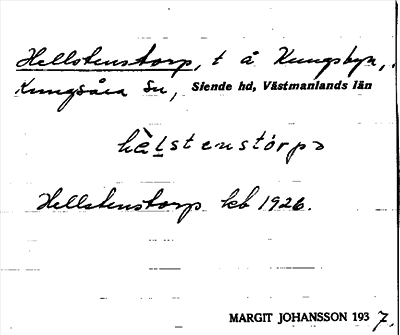 Hellstenstorp, t å Kungsbyn,
Kungsåra sn, Siende hd, Västmanlands län
hὲlstenstórp
Hellstenstorp kb 1926.
MARGIT JOHANSSON 1937.